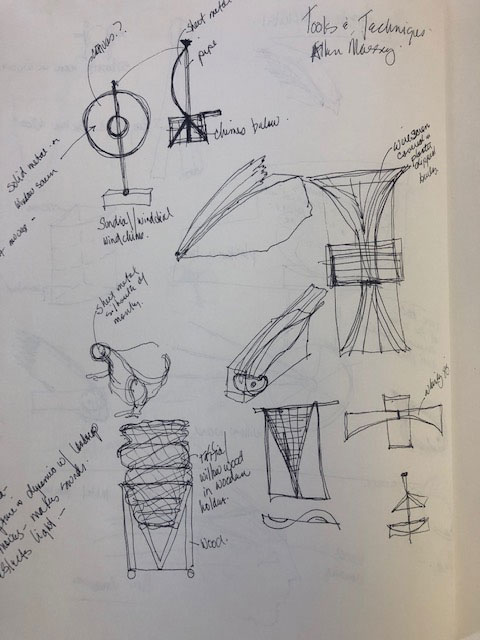 Tools & Techniques
Allan Massey
canvas?
sheet metal
pipe
chimes below.
solid metal or
window screen
moves -
Sundial/windvial
windchime.
wire screen
covered w
plaster
dipped
Sheet metal
silhouette of
monkey.
raffia/
willow wood
in wooden
holder.
wood
dynamic w/
moves - makes sounds.
reflects light. -